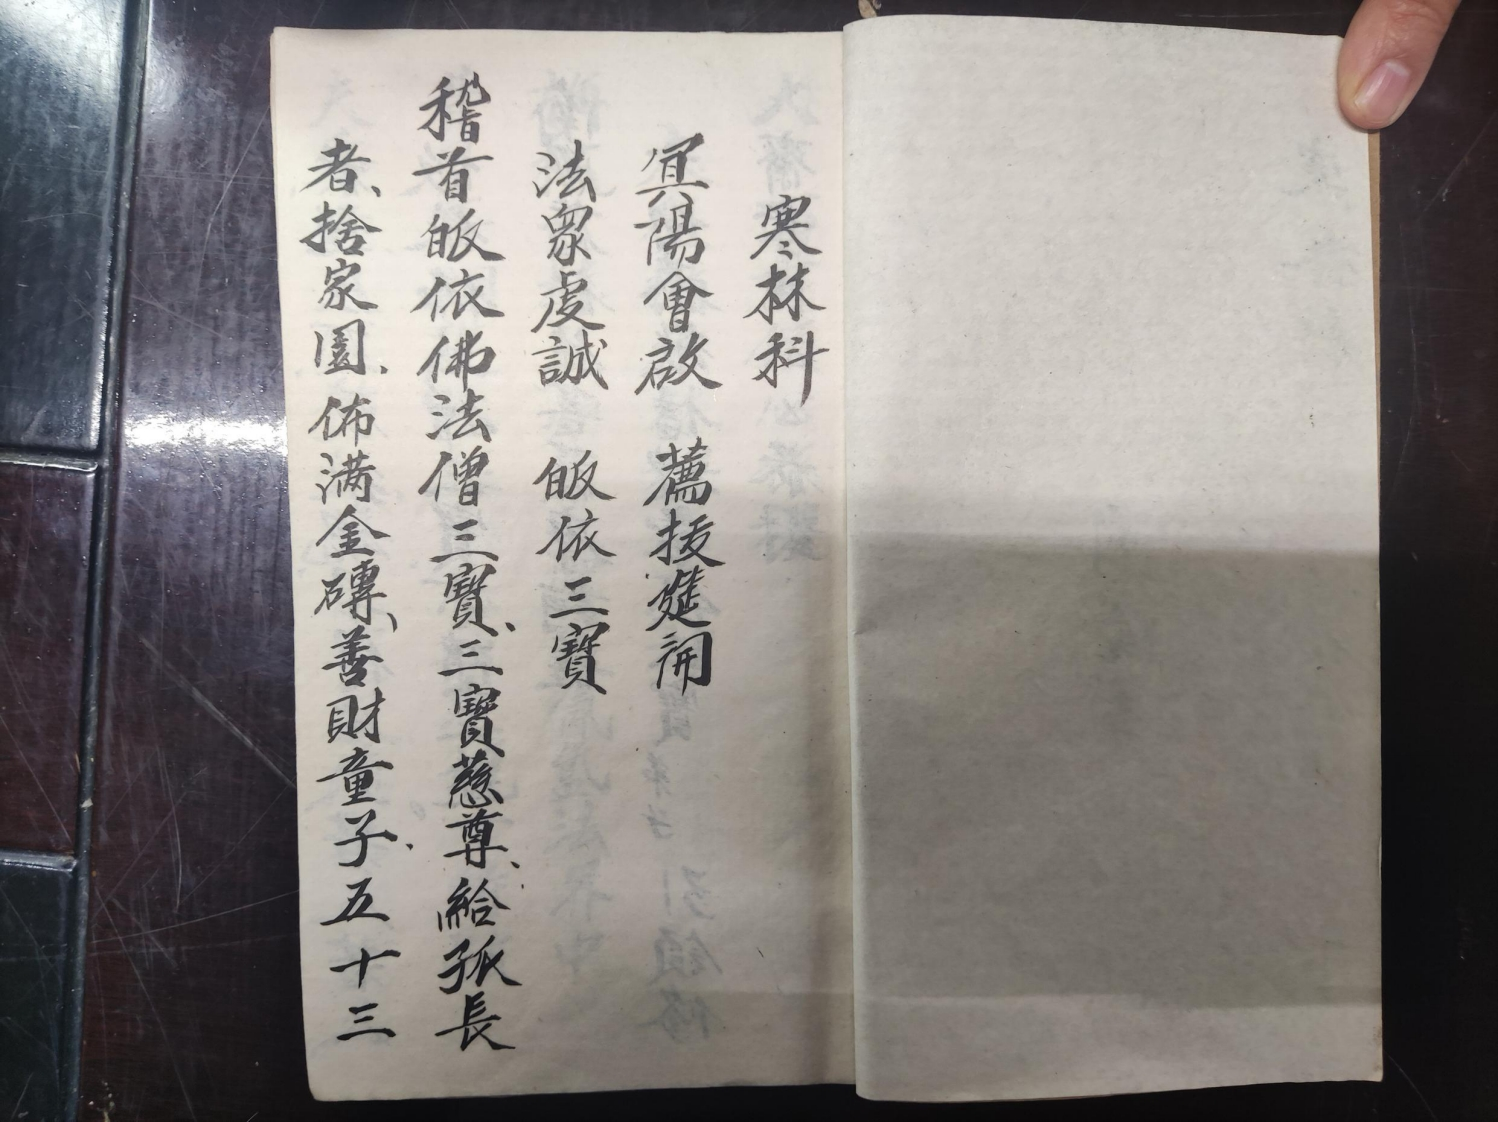 寒林科
冥陽會啟 薦拔筵開
法眾虔誠 皈依三寶
稽首皈依佛法僧三寶、三寶慈尊、給孤長
者、捨家園、佈滿金磚、善財童子、五十三